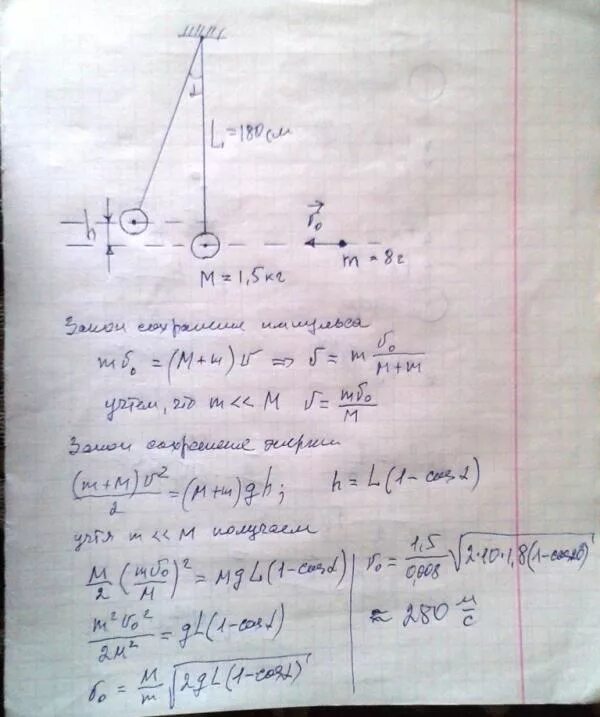 α
L = 180 см
h
v₀
m = 8г
M = 1,5 кг
Закон сохранения импульса
mv₀ = (M+m)v ⇒ v = m v₀/(M+m)
учтём, что m << M v = mv₀/M
Закон сохранения энергии
(m+M)v²/2 = (M+m)gh; h = L(1-cosα)
учтя m << M получаем
M/2 (mv₀/M)² = MgL(1-cosα)
m²v₀²/2M² = gL(1-cosα)
v₀ = M/m √(2gL(1-cosα))
v₀ = 1,5/0,008 √(2·10·1,8(1-cosα))
≈ 280 м/с